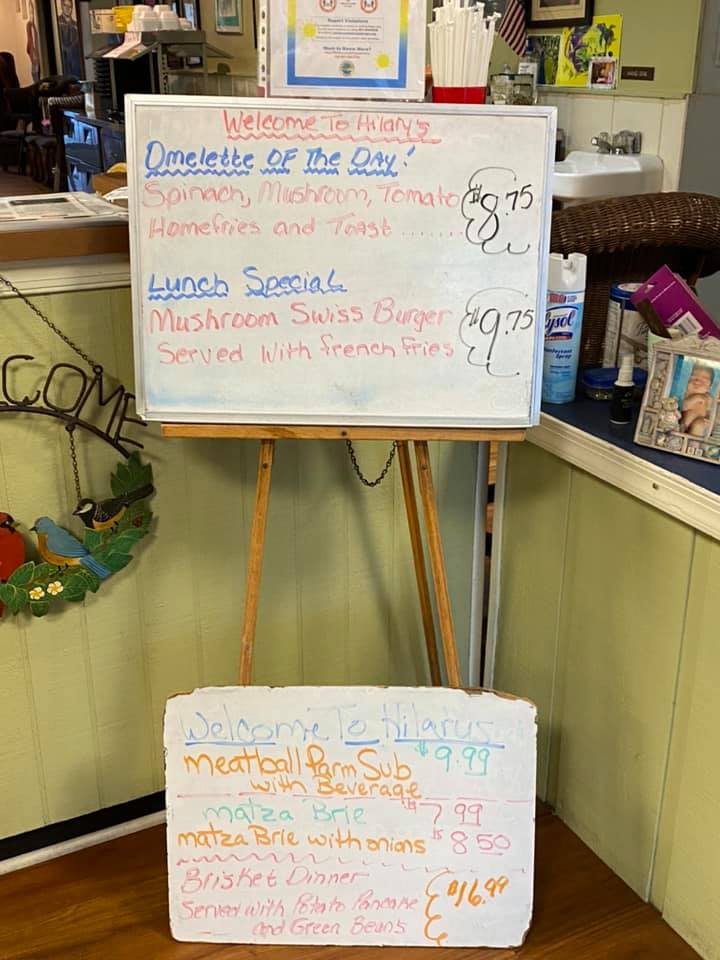 Report Violations
Want to Know More?
Welcome To Hilary's
Omelette OF The DAY!
Spinach, Mushroom, Tomato $8.75
Homefries and Toast .......
Lunch Special
Mushroom Swiss Burger $9.75
Served With french fries
Lysol
COME
Welcome To Hilarys
meatball Parm Sub $9.99
with Beverage
matza Brie $7.99
matza Brie with onions $8.50
Brisket Dinner $16.99
Served with Potato Pancake
and Green Beans